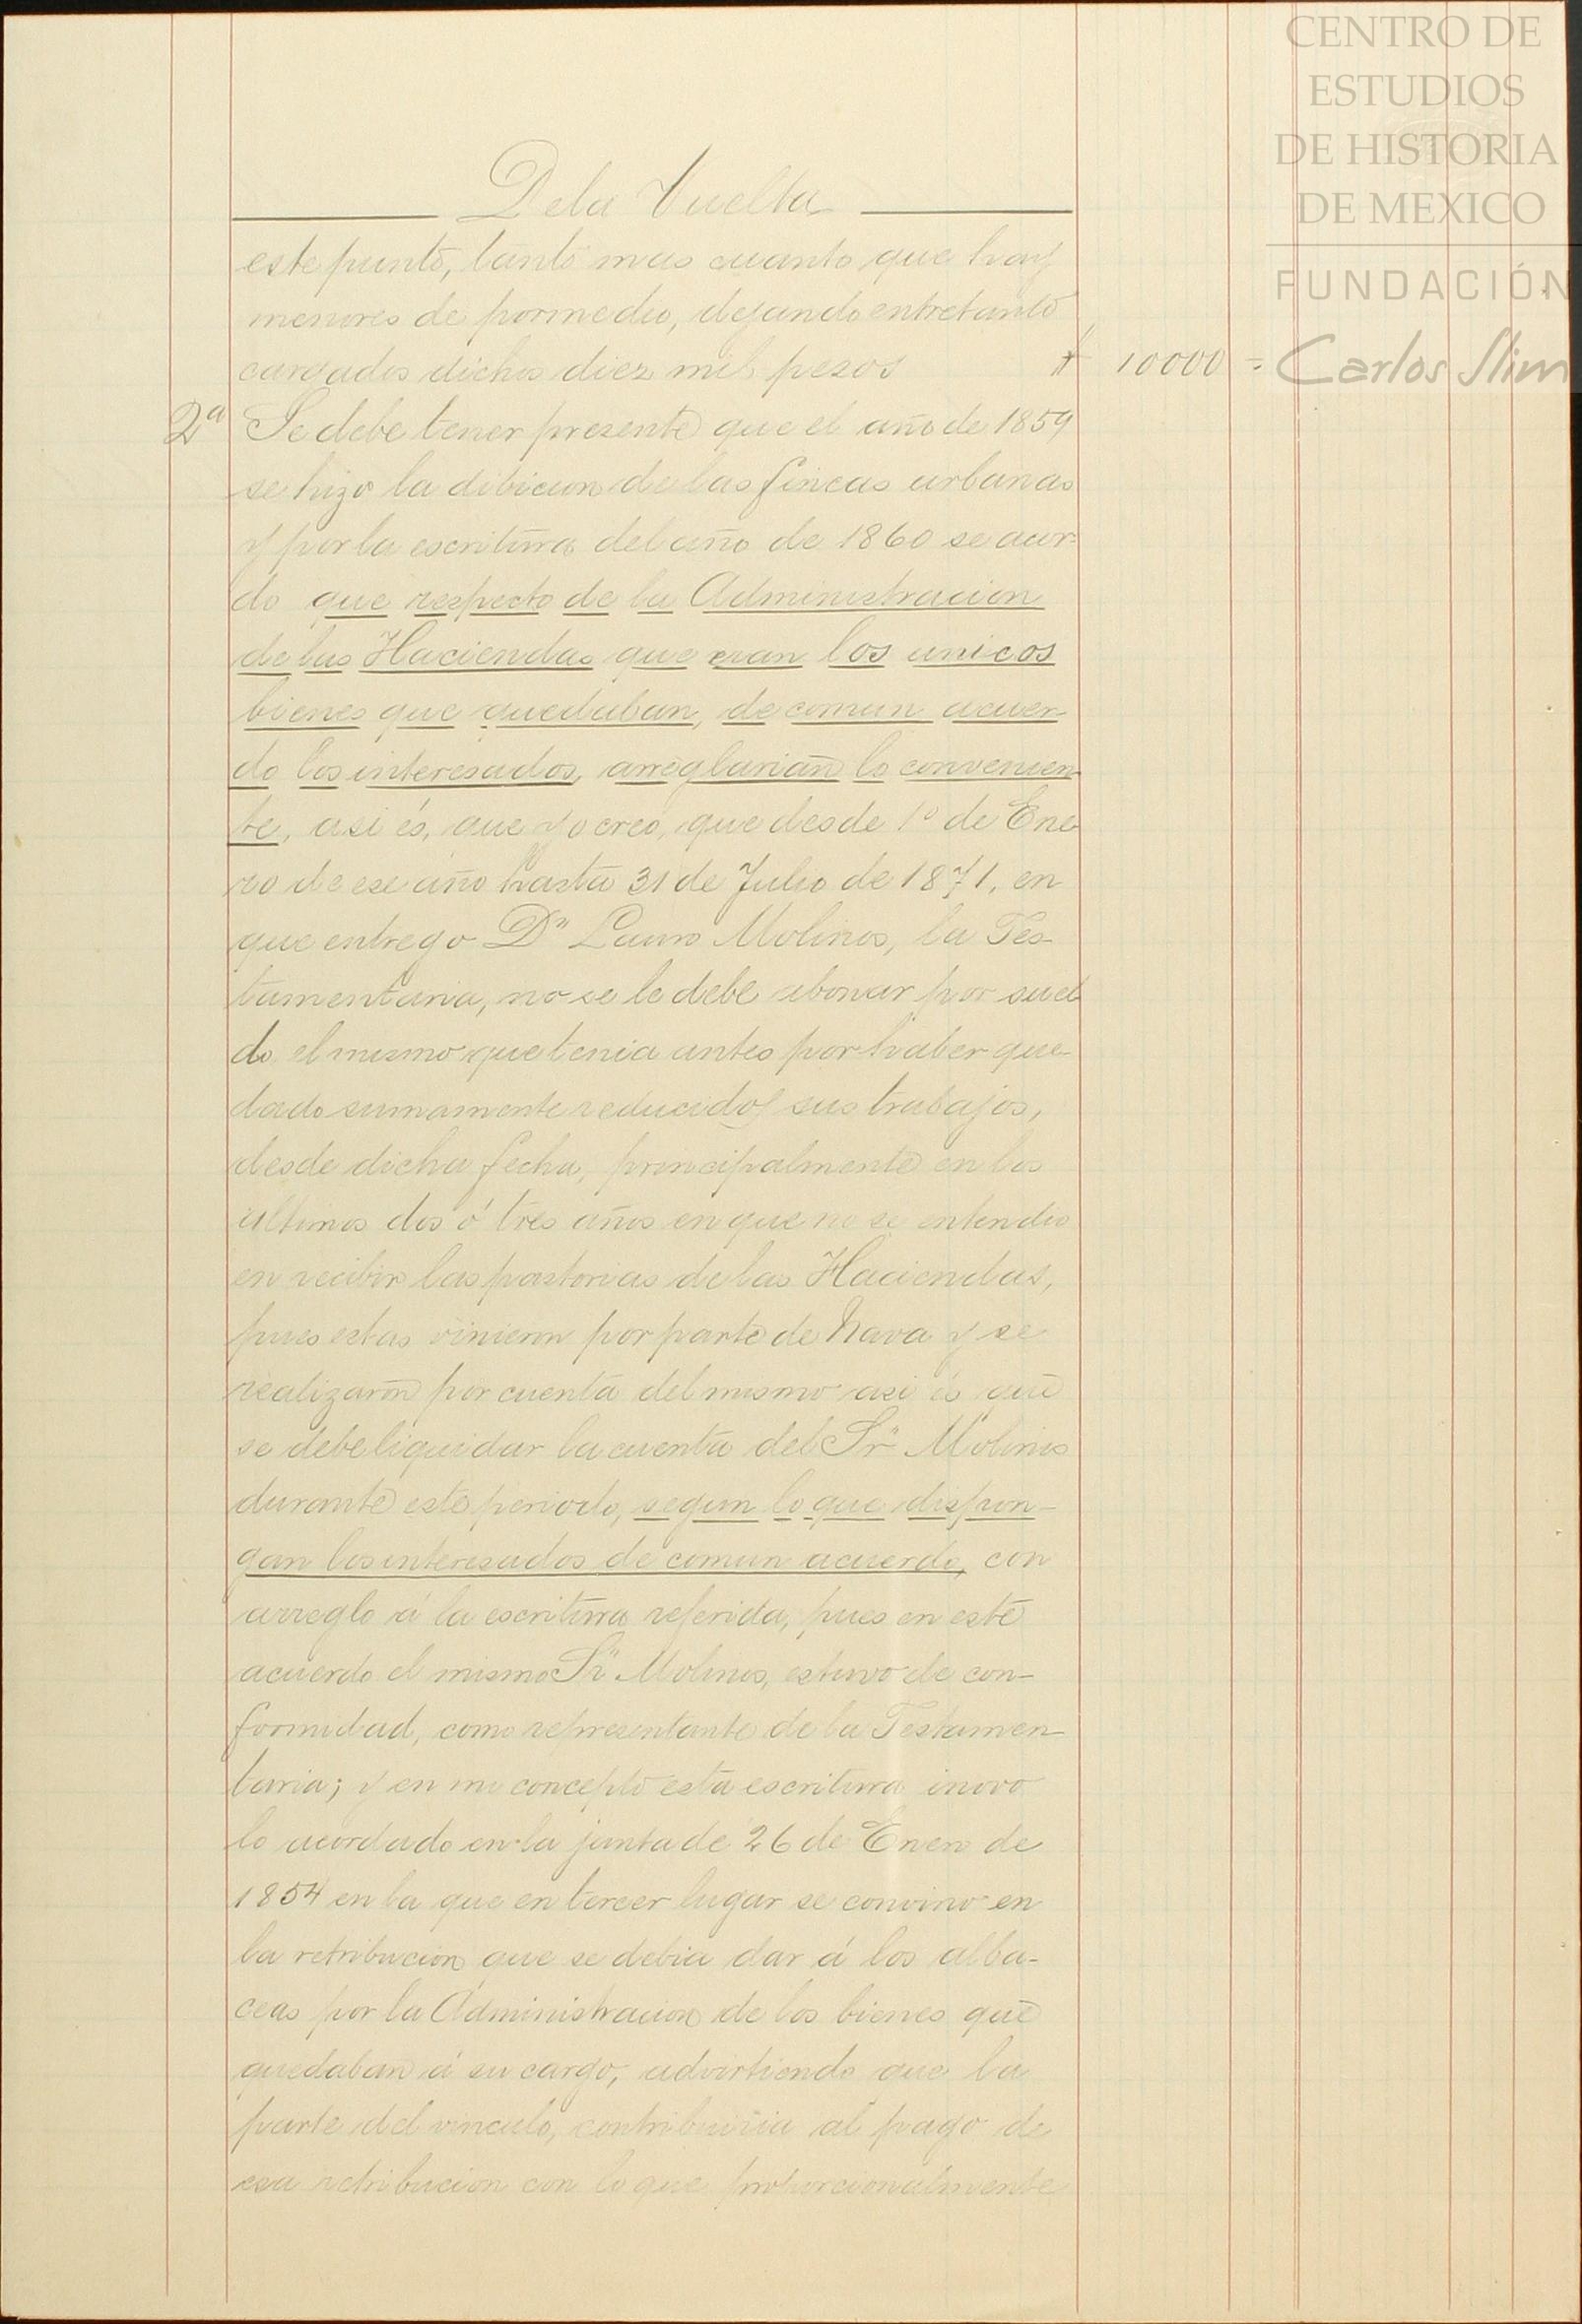 CENTRO DE
ESTUDIOS
DE HISTORIA
DE MEXICO
FUNDACIÓN
Carlos Slim
De la Vuelta
este punto, tanto mas cuanto que hay
menores de pormedio, dejando entretanto
cargados dichos diez mil pesos $ 10000 =
2ª Se debe tener presente que el año de 1859
se hizo la dibicion de las fincas urbanas
y por la escritura del año de 1860 se acor-
do que respecto de la Administracion
de las Haciendas que eran los unicos
bienes que quedaban, de comun acuer-
do los interesados, arreglarian lo convenien-
te, asi és, que yo creo, que desde 1º de Ene-
ro de ese año hasta 31 de Julio de 1871, en
que entrego Dn Lauro Molinos, la Tes-
tamentaria, no se le debe abonar por suel-
do el mismo que tenia antes por haber que-
dado sumamente reducidos sus trabajos,
desde dicha fecha, principalmente en los
ultimos dos ó tres años en que no se entendio
en recibir las pastorias de las Haciendas,
pues estas vinieron por parte de Nava y se
realizaron por cuenta del mismo asi és que
se debe liquidar la cuenta del Sr. Molinos
durante este periodo, segun lo que dispon-
gan los interesados de comun acuerdo, con
arreglo á la escritura referida, pues en este
acuerdo el mismo Sr. Molinos, estuvo de con-
formidad, como representante de la Testamen-
taria; y en mi concepto esta escritura inovo
lo acordado en la junta de 26 de Enero de
1854 en la que en tercer lugar se convino en
la retribucion que se debia dar á los alba-
ceas por la Administracion de los bienes que
quedaban á su cargo, advirtiendo que la
parte del vinculo, contribuiria al pago de
esa retribucion con lo que proporcionalmente